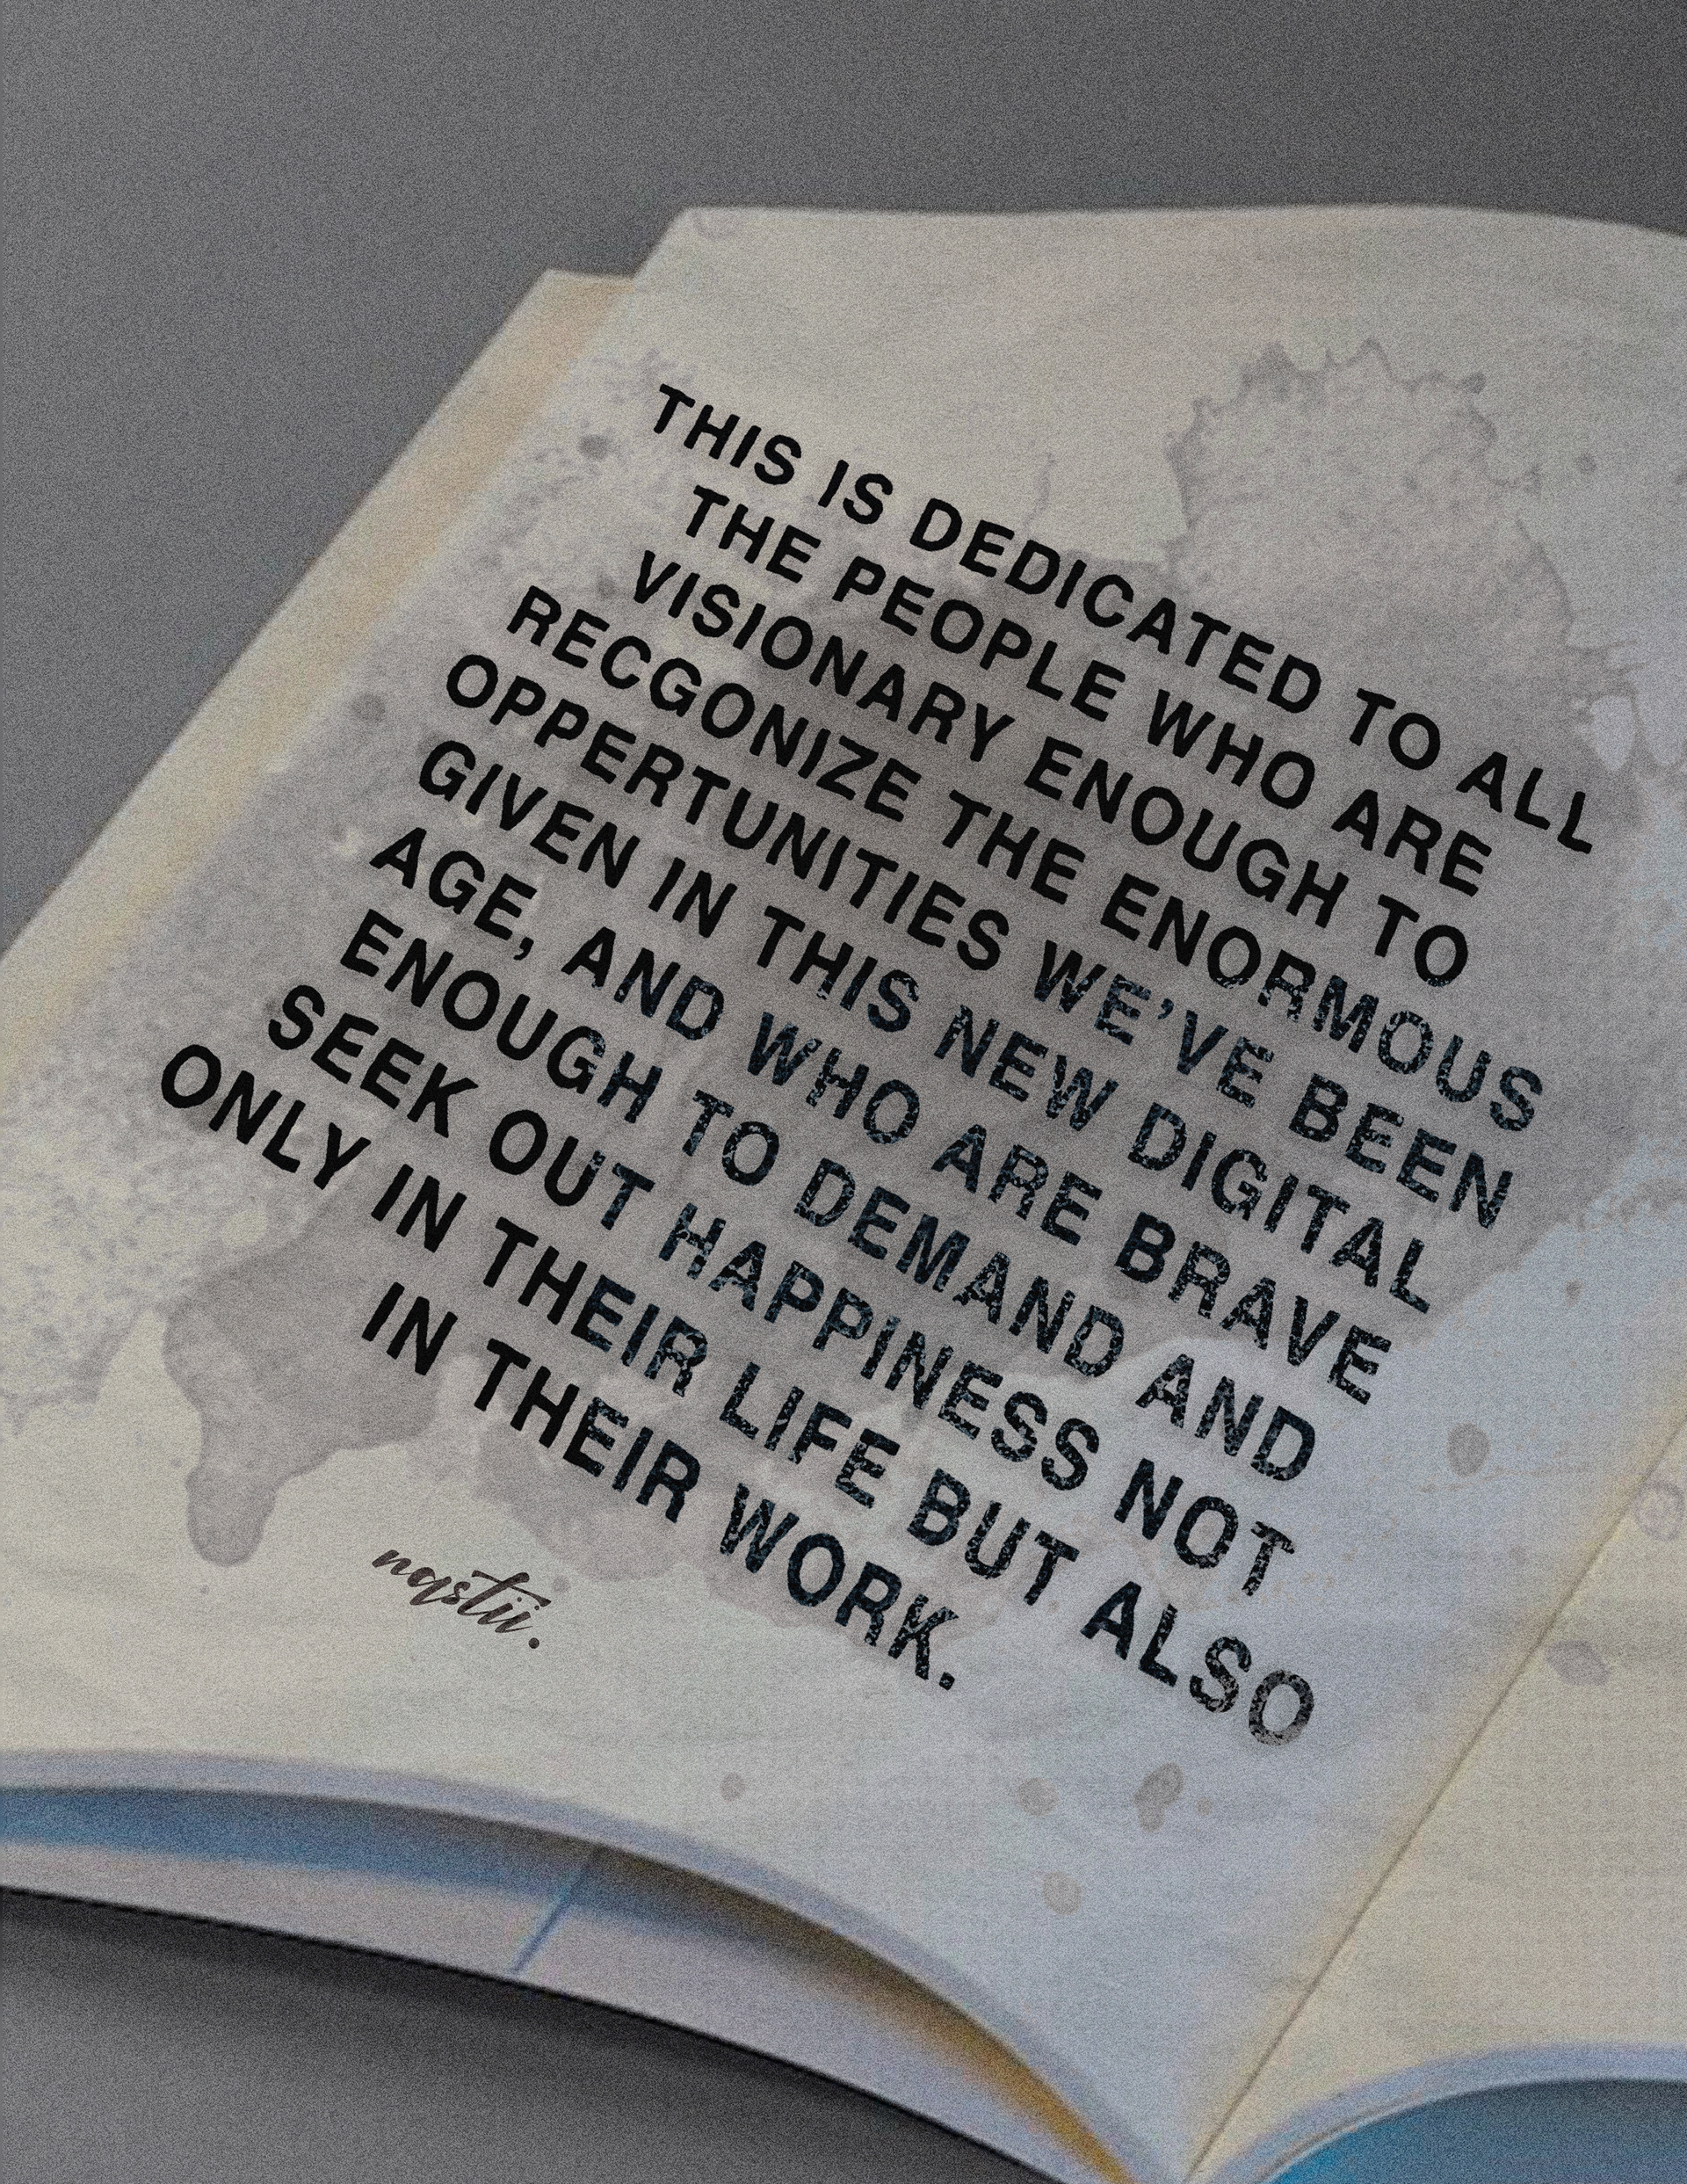 THIS IS DEDICATED TO ALL
THE PEOPLE WHO ARE
VISIONARY ENOUGH TO
RECGONIZE THE ENORMOUS
OPPERTUNITIES WE'VE BEEN
GIVEN IN THIS NEW DIGITAL
AGE, AND WHO ARE BRAVE
ENOUGH TO DEMAND AND
SEEK OUT HAPPINESS NOT
ONLY IN THEIR LIFE BUT ALSO
IN THEIR WORK.
nastii.